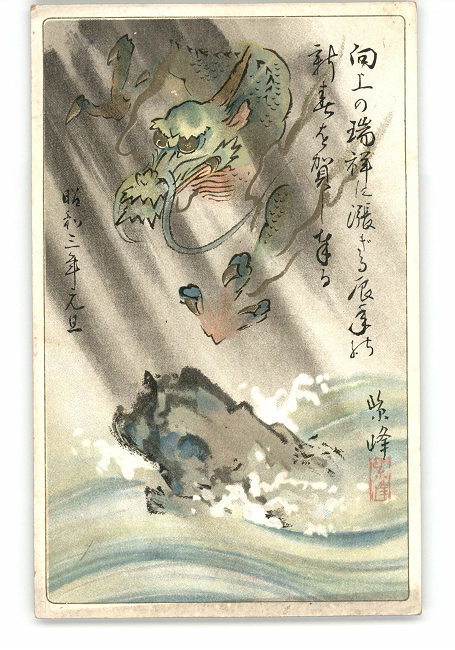 向上の瑞祥に漲ぎる辰年の
新春を賀し奉る
昭和三年元旦
紫峰
紫峰